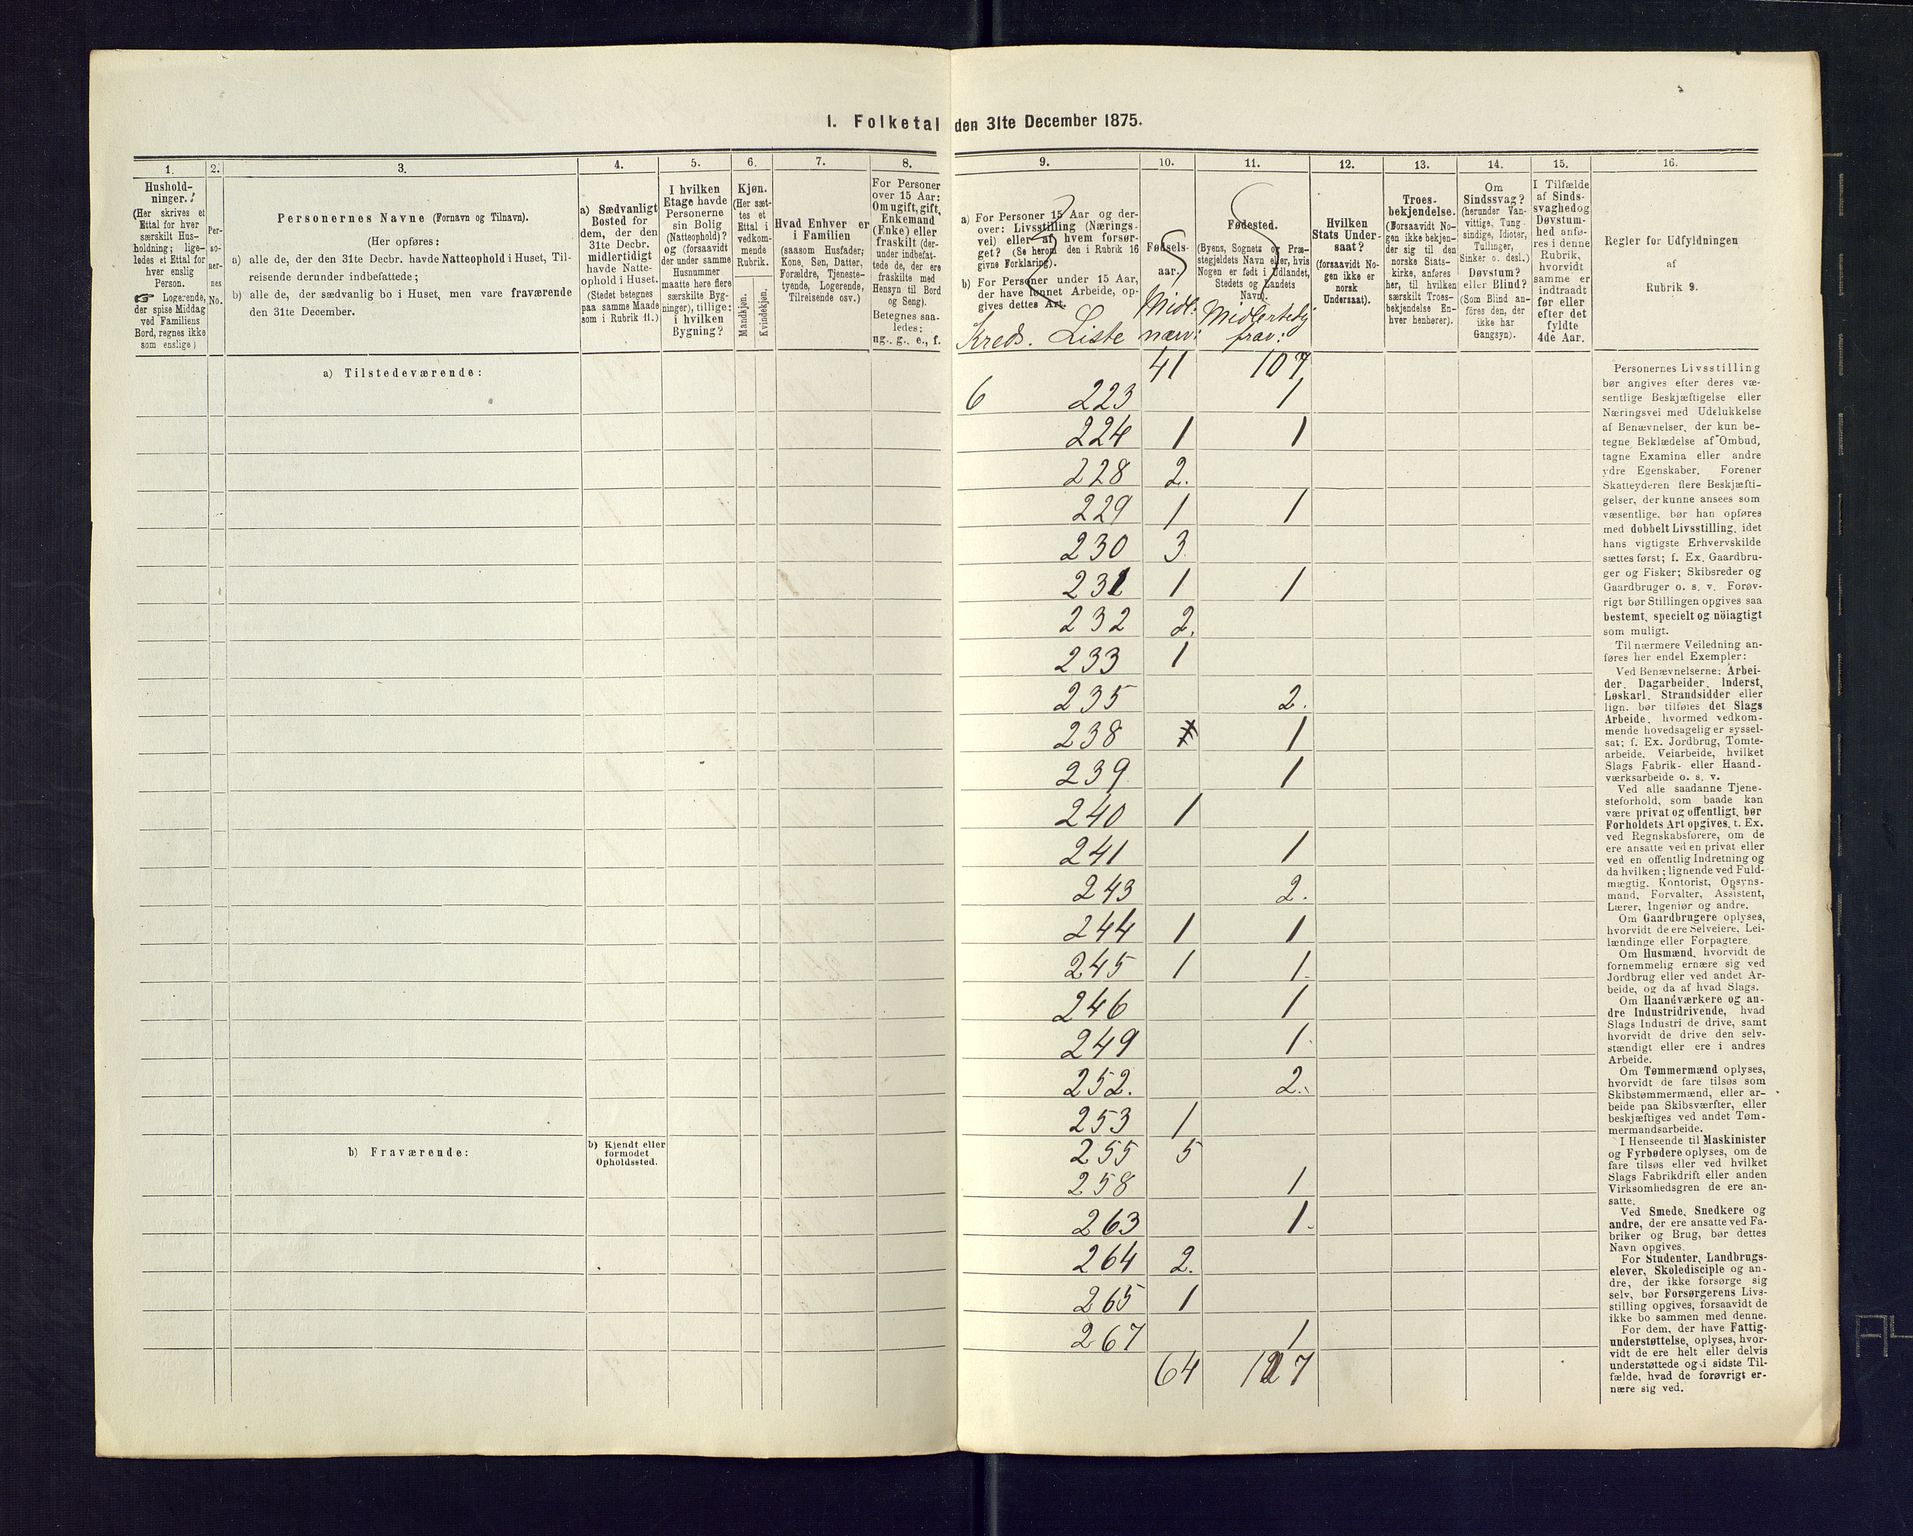 I. Folketal den 31te December 1875.
1. 2. 3. 4. 5. 6. 7. 8.
Hushold-
ninger.
(Her skrives et
Ettal for hver
særskilt Hus-
holdning; lige-
ledes et Ettal for
hver enslig
Person.
☞ Logerende,
der spise Middag
ved Familiens
Bord, regnes ikke
som enslige)
Per-
so-
ner-
nes
No.
Personernes Navne (Fornavn og Tilnavn).
(Her opføres:
a) alle de, der den 31te Decbr. havde Natteophold i Huset, Til-
reisende derunder indbefattede;
b) alle de, der sædvanlig bo i Huset, men vare fraværende
den 31te December.
a) Sædvanligt
Bosted for
dem, der den
31te Decbr.
midlertidigt
havde Natte-
ophold i Huset.
(Stedet betegnes
paa samme Maade
som i Rubrik 11.)
I hvilken
Etage havde
Personerne
sin Bolig
(Natteophold)?
og (forsaavidt
der under samme
Husnummer
maatte høre flere
særskilte Byg-
ninger), tillige:
i hvilken
Bygning?
Kjøn.
(Her sæt-
tes et
Ettal i
vedkom-
mende
Rubrik.
Mandkjøn.
Kvindekjøn.
Hvad Enhver er
i Familien
(saasom Husfader,
Kone, Søn, Datter,
Forældre, Tjeneste-
tyende, Logerende,
Tilreisende osv.)
For Personer
over 15 Aar:
Om ugift, gift,
Enkemand
(Enke) eller
fraskilt (der-
under indbefat-
tede de, der ere
fraskilte med
Hensyn til Bord
og Seng).
Betegnes saa-
ledes:
ug., g., e., f.
a) Tilstedeværende:
b) Fraværende:
b) Kjendt eller
formodet
Opholdssted.
9. 10. 11. 12. 13. 14. 15. 16.
a) For Personer 15 Aar og der-
over: Livsstilling (Nærings-
vei) eller af hvem forsør-
get? (Se herom den i Rubrik 16
givne Forklaring).
b) For Personer under 15 Aar,
der have lønnet Arbeide, op-
gives dettes Art.
Fødsels-
aar.
Fødested.
(Byens, Sognets og Præ-
stegjeldets Navn eller, hvis
Nogen er født i Udlandet,
Stedets og Landets
Navn).
Hvilken
Stats Under-
saat?
(forsaavidt No-
gen ikke er
norsk
Undersaat).
Troes-
bekjendelse.
(Forsaavidt No-
gen ikke bekjen-
der sig til den
norske Stats-
kirke, anføres
her, til hvilken
særskilt Troes-
bekjendelse En-
hver henhører).
Om
Sindssvag?
(herunder Van-
vittige, Tung-
sindige, Idioter,
Tullinger,
Sinker o. desl.)
Døvstum?
eller Blind?
(Som Blind an-
föres den, der
ikke har
Gangsyn).
I Tilfælde
af Sinds-
svaghed og
Døvstum-
hed anfø-
res i denne
Rubrik,
hvorvidt
samme er
indtraadt
før eller
efter det
fyldte
4de Aar.
Regler for Udfyldningen
af
Rubrik 9.
Kreds. Liste Midl: nærv: Midlertidig frav:
41 107
6 223 1
224 1 1
228 2.
229 1 1
230 3
231 1 1
232 2.
233 1
235 2.
238 1
239 1
240 1
241 1
243 2.
244 1 1
245 1 1.
246 1
249 1.
252. 2.
253 1
255 5
258 1
263 1.
264 2.
265 1
267 1
64 127
Personernes Livsstilling
bør angives efter deres væ-
sentlige Beskjæftigelse eller
Næringsvei med Udelukkelse
af Benævnelser, der kun be-
tegne Beklædelse af Ombud,
tagne Examina eller andre
ydre Egenskaber. Forener
Skatteyderen flere Beskjæfti-
gelser, der kunne ansees som
væsentlige, bør han opføres
med dobbelt Livsstilling, idet
hans vigtigste Erhvervskilde
sættes først; f. Ex. Gaardbru-
ger og Fisker; Skibsreder og
Gaardbruger o. s. v. Forøv-
rigt bør Stillingen opgives saa
bestemt, specielt og nöiagtigt
som muligt.
Til nærmere Veiledning an-
føres her endel Exempler:
Ved Benævnelserne: Arbei-
der, Dagarbeider, Inderst,
Løskarl, Strandsidder eller
lign. bør tilføies det Slags
Arbeide, hvormed vedkom-
mende hovedsagelig er syssel-
sat; f. Ex. Jordbrug, Tomte-
arbeide, Veiarbeide, hvilket
Slags Fabrik- eller Haand-
værksarbeide o. s. v.
Ved alle saadanne Tjene-
steforhold, som baade kan
være privat og offentligt, bør
Forholdets Art opgives, t. Ex.
ved Regnskabsførere, om de
ere ansatte ved en privat eller
ved en offentlig Indretning og
da hvilken; lignende ved Fuld-
mægtig, Kontorist, Opsyns-
mand, Forvalter, Assistent,
Lærer, Ingeniør og andre.
Om Gaardbrugere oplyses,
hvorvidt de ere Selveiere, Lei-
lændinge eller Forpagtere.
Om Husmænd, hvorvidt de
fornemmelig ernære sig ved
Jordbrug eller ved andet Ar-
beide, og da af hvad Slags.
Om Haandværkere og an-
dre Industridrivende, hvad
Slags Industri de drive, samt
hvorvidt de drive den selv-
stændigt eller ere i andres
Arbeide.
Om Tømmermænd oplyses,
hvorvidt de fare tilsøs som
Skibstømmermænd, eller ar-
beide paa Skibsværfter, eller
beskjæftiges ved andet Tøm-
mermandsarbeide.
I Henseende til Maskinister
og Fyrbødere oplyses, om de
fare tilsøs eller ved hvilket
Slags Fabrikdrift eller anden
Virksomhedsgren de ere an-
satte.
Ved Smede, Snedkere og
andre, der ere ansatte ved Fa-
briker og Brug, bør dettes
Navn opgives.
For Studenter, Landbrugs-
elever, Skoledisciple og an-
dre, der ikke forsørge sig
selv, bør Forsørgerens Livs-
stilling opgives, forsaavidt de
ikke bo sammen med denne.
For dem, der have Fattig-
understøttelse, oplyses, hvor-
vidt de ere helt eller delvis
understøttede og i sidste Til-
fælde, hvad de forøvrigt er-
nære sig ved.